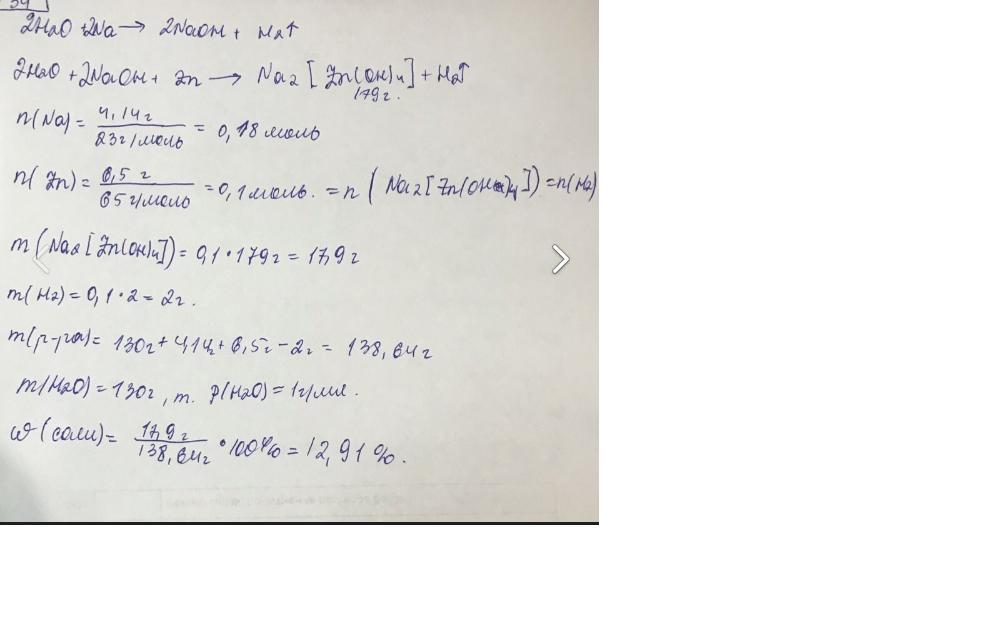 34
2H₂O + 2Na → 2NaOH + H₂↑
2H₂O + 2NaOH + Zn → Na₂[Zn(OH)₄] + H₂↑
179г.
n(Na) = 4,14г / 23г/моль = 0,18 моль
n(Zn) = 6,5 г / 65 г/моль = 0,1 моль. = n(Na₂[Zn(OH)₄]) = n(H₂)
m(Na₂[Zn(OH)₄]) = 0,1 · 179г = 17,9г
m(H₂) = 0,1 · 2 = 2г.
m(р-ра) = 130г + 4,14г + 6,5г - 2г = 138,64г
m(H₂O) = 130г, т. ρ(H₂O) = 1г/мл.
ω(соли) = 17,9г / 138,64г · 100% = 12,91%.